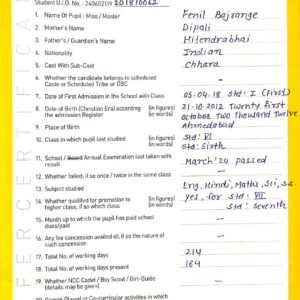 Student U.I.D. No. : 240602119 201810062
1. Name Of Pupil : Miss / Master Fenil Bajrange
2. Mother's Name Dipali
3. Father's / Guardian's Name Hitendrabhai
4. Nationality Indian
5. Cast With Sub-Cast Chhara
6. Whether the candidate belongs to scheduled
Caste or Scheduled Tribe or OBC —
7. Date of First Admission in the School with Class 05.04.18 Std: I (First)
8. Date of Birth (Christian Era) according (in figures) 21-10-2012 Twenty first
the admission Register (in words) October Two Thousand Twelve
9. Place of Birth Ahmedabad
10. Class in which pupil last studied (in figures) Std: VI
(in words) Std: Sixth
11. School / Board Annual Examination last taken with
result March'24 passed
12. Whether failed; if so once / twice in the same class —
13. Subject studied Eng, Hindi, Maths, Sci, S.S
14. Whether qualified for promotion to (in figures) yes, for std: VII
higher class; if so which class (in words) Std: Seventh
15. Month up to which the pupil has paid school
dues/paid
16. Any fee concession availed of; if so the nature of
such concession
17. Total No. of working days 214
18. Total No. of working days present 164
19. Whether NCC Cadet / Boy Scout / Girl-Guide
(details may be given)
Played or Co-curricular activities in which
CERTIFICAT
FER